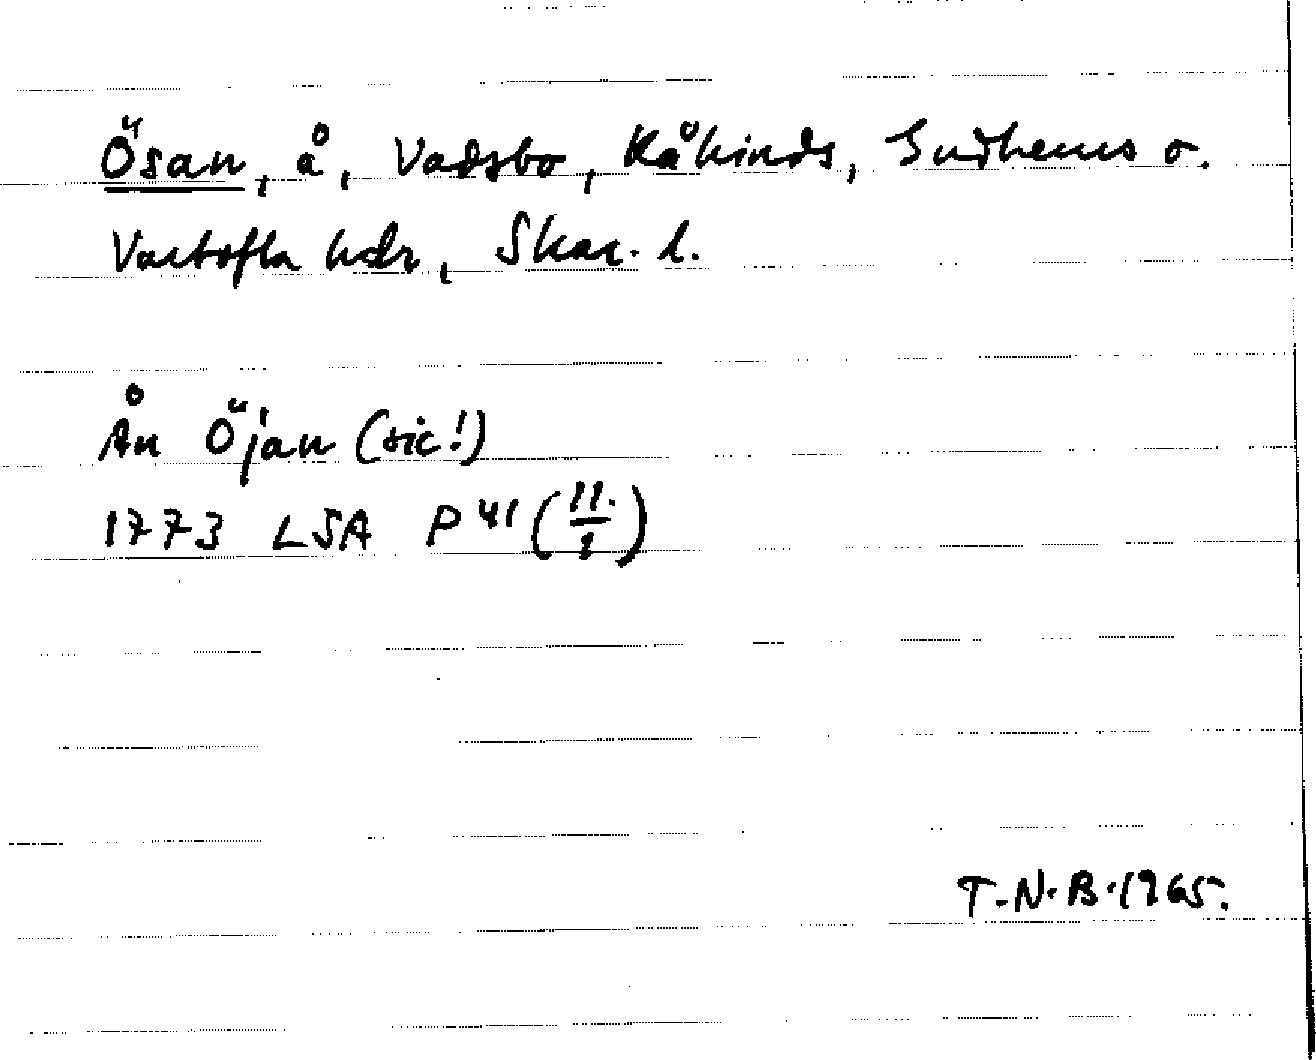 Ösan, å, Vadsbo, Kåkinds, Gudhems o.
Vartofta hdr, Skar. l.
Ån Öjan (sic!)
1773 LSA P 41 (11:/1)
T.N.B. 1965.